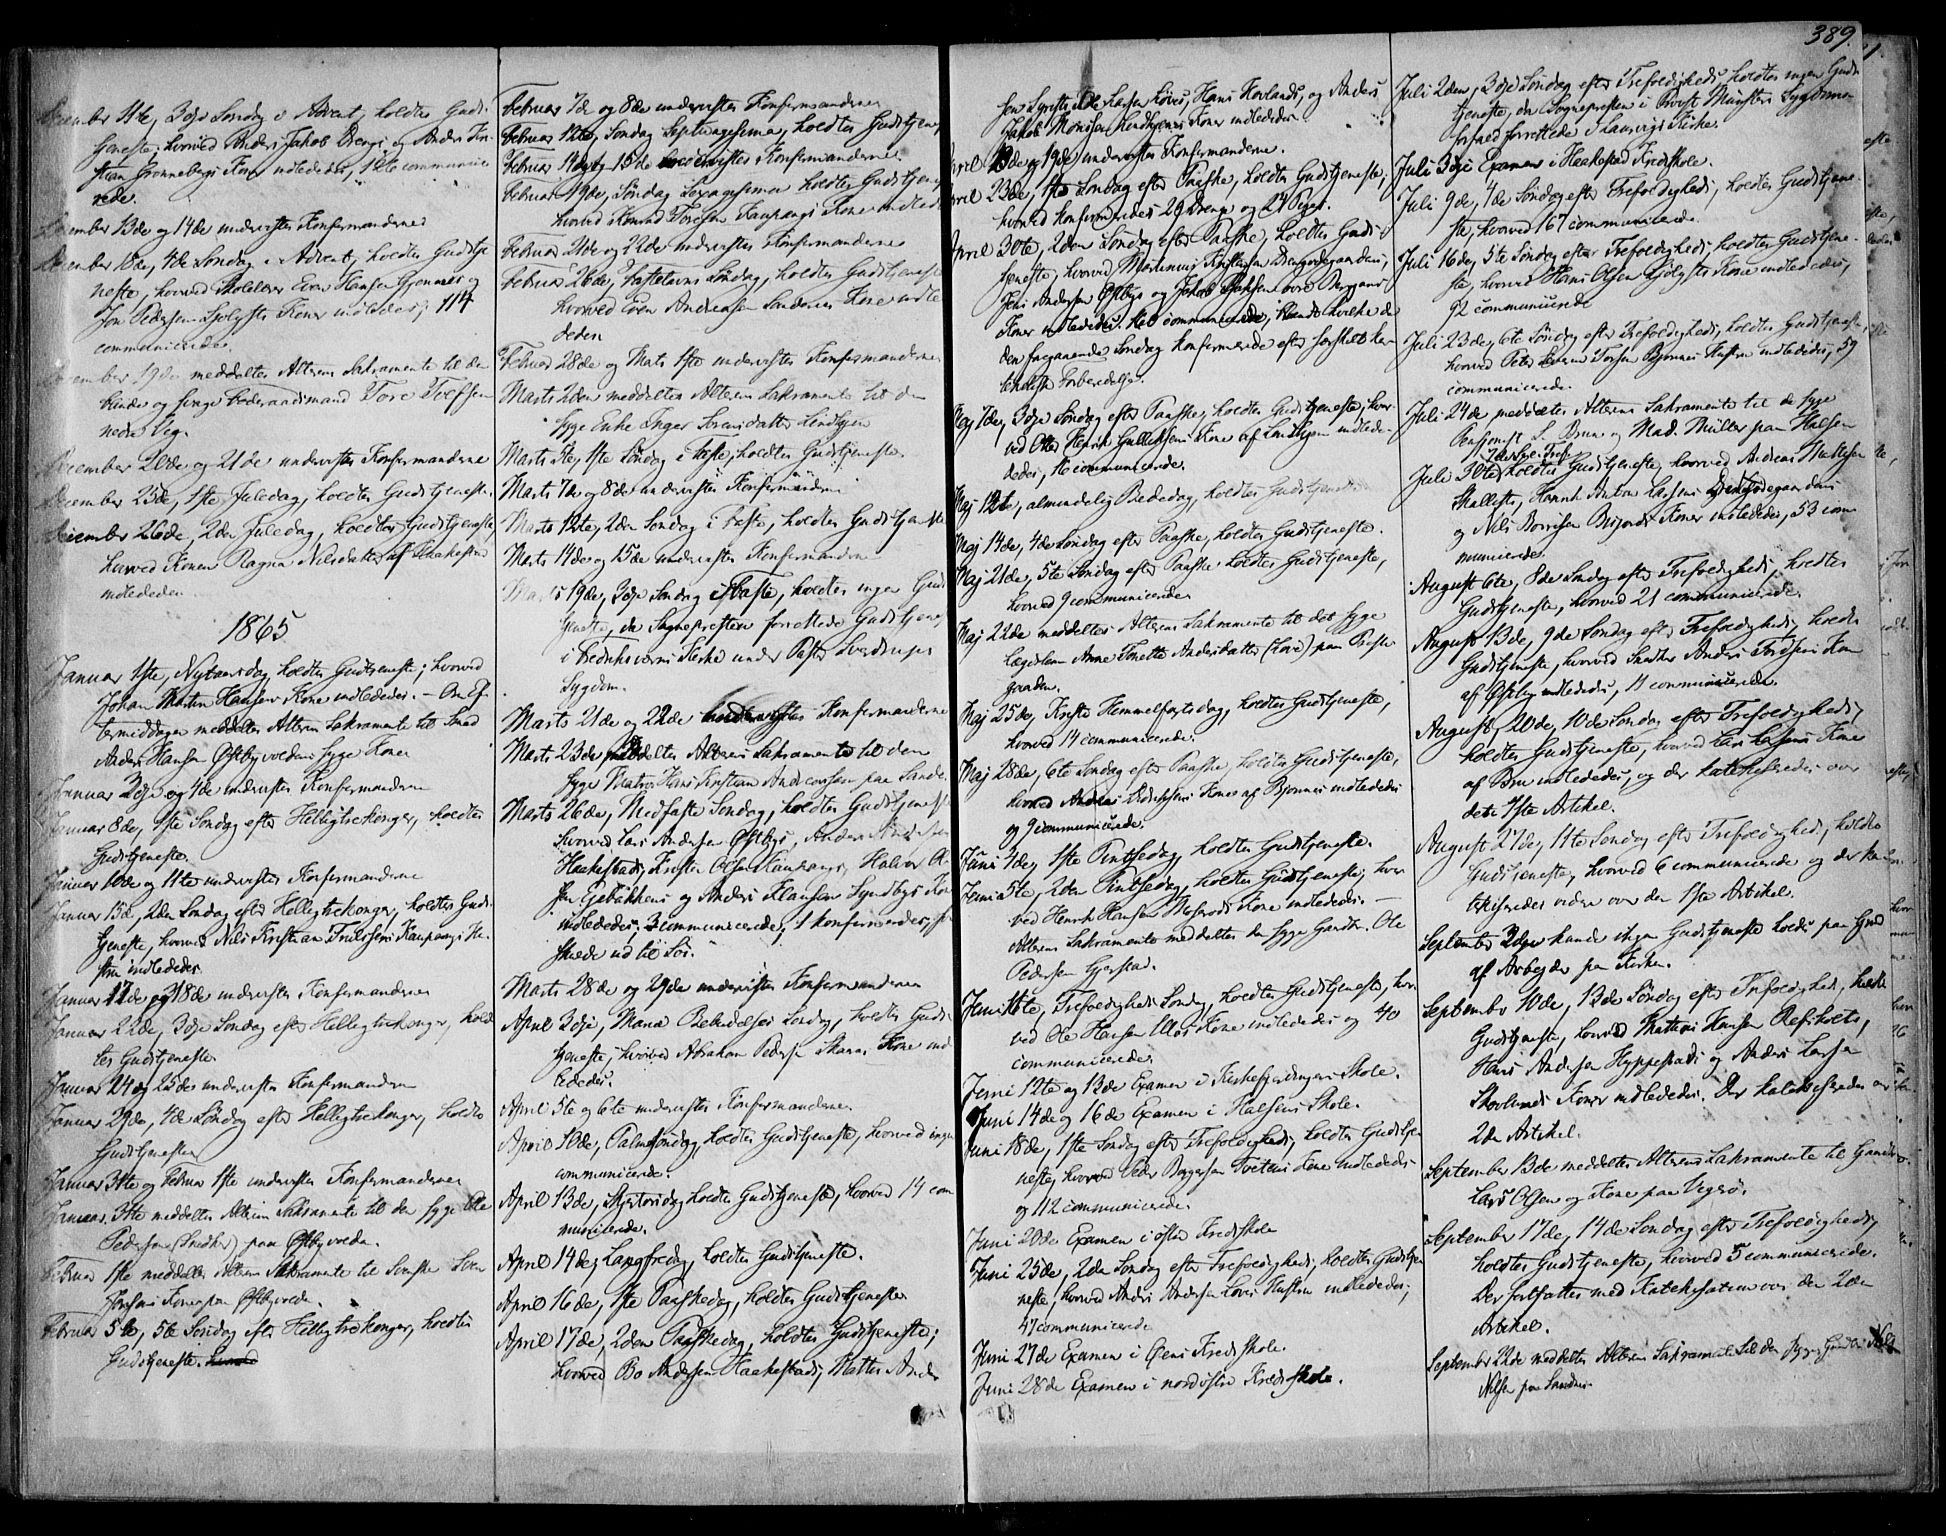 389.
December 11te, 3dje Söndag i Advent, holdtes Guds-
tjeneste; hvorved Anders Jakob Bergs og Anders Kri-
stian Grønnebergs Koner indlededes, 12te communice-
rede.
December 13de og 14de undervistes Konfirmanderne
December 18de, 4de Söndag i Advent, holdtes Gudstje-
neste, hvorved Skolelærer Even Hansen Gjonnes og
Jon Pedersen Sjølysts Koner indlededes; 114
communicerede.
December 19de meddeltes Alterens Sakramente til den
blinde og svage Føderaadsmand Tore Tolfsen
nedre Veg.
December 20de og 21de undervistes Konfirmanderne
December 25de, 1ste Juledag, holdtes Gudstjeneste.
December 26de, 2den Juledag, holdtes Gudstjeneste,
hvorved Konen Ragna Nilsdatter af Haakestad
indlededes.
1865
Januar 1ste, Nytaarsdag, holdtes Gudstjeneste; hvorved
Johan Martin Hansens Kone indlededes. – Om Ef-
termiddagen meddeltes Alterens Sakramente til Smed
Anders Hansen Østbyvoldens syge Kone
Januar 3dje og 4de undervistes Konfirmanderne
Januar 8de, 1ste Söndag efter Helligtrekonger, holdtes
Gudstjeneste.
Januar 10de og 11te undervistes Konfirmanderne
Januar 15de, 2den Söndag efter Helligtrekonger, holdtes Guds-
tjeneste, hvorved Nils Kristian Kaupangs Hu-
stru indlededes
Januar 17de og 18de undervistes Konfirmanderne
Januar 22de, 3dje Söndag efter Helligtrekonger, hold-
tes Gudstjeneste
Januar 24 og 25de undervistes Konfirmanderne
Januar 29de, 4de Söndag efter Helligtrekonger, holdtes
Gudstjeneste
Januar 31te og Februar 1ste undervistes Konfirmanderne
Januar 31te meddeltes Alterens Sakramente til den syge Ole
Pedersen (Snedker) paa Østbyvolden.
Februar 1ste meddeltes Alterens Sakramente til Svenske Sven
Jonsens Kone paa Østbyvolden.
Februar 5te, 5te Söndag efter Helligtrekonger, holdtes
Gudstjeneste. hvorved
Februar 7de og 8de undervistes Konfirmanderne
Februar 12te, Söndag Septuagesima, holdtes Gudstjeneste
Februar 14de og 15de undervistes Konfirmanderne
Februar 19de, Söndag Sexagesima holdtes Gudstjeneste
hvorved Konrad Toresen Kaupangs Kone indlededes
Februar 21de og 22de undervistes Konfirmanderne
Februar 26de, Fastelavns Söndag, holdtes Gudstjeneste
hvorved Even Andersen Sanderens Kone indle-
dedes
Februar 28de og Marts 1ste undervistes Konfirmanderne
Marts 2den meddeltes Alterens Sakramente til den
syge Enke Inger Sörensdatter Lindhjem
Marts 5te, 1ste Söndag i Faste, holdtes Gudstjeneste.
Marts 7de og 8de undervistes Konfirmanderne
Marts 12te, 2den Söndag i Faste, holdtes Gudstjeneste
Marts 14de og 15de undervistes Konfirmanderne
Marts 19de, 3dje Söndag i Faste, holdtes ingen Guds-
tjeneste, da Sognepresten forrettede Gudstjeneste
i Fredriksværns Kirke under Pastor Sverdrups
Sygdom.
Marts 21de og 22de undervistes Konfirmanderne
Marts 23de meddeltes Alterens Sakramente til den
syge Matros Hans Kristian Andersen paa Sande
Marts 26de, Midfaste Söndag, holdtes Gudstjeneste
hvorved Lars Andersen Østbys, Anders
Haakestads, Kristen Olsen Kaupangs, Halvor Ol-
sen Gjebäkkens og Anders Klausen Lyndbys Koner
indlededes; 3 communicerede; 1 konfirmeredes, som
skulde ud til Søs.
Marts 28de og 29de undervistes Konfirmanderne
April 3dje, Mariæ Bebudelses Søndag, holdtes Guds-
tjeneste, hvorved Abraham Pedersen Skaras Kone ind-
lededes.
April 5te og 6te undervistes Konfirmanderne.
April 10de, Palmesöndag, holdtes Gudstjeneste, hvorved ingen
communicerede.
April 13de, Skjærtorsdag, holdtes Gudstjeneste, hvorved 14 com-
municerede.
April 14de, Langfredag, holdtes Gudstjeneste.
April 16de, 1ste Paaskedag, holdtes Gudstjeneste
April 17de, 2den Paaskedag, holdtes Gudstjeneste;
hvorved Bo Andersen Haakestads, Mathis Ander-
sen Larsen Löves, Hans Hovlands, og Anders
Jakob Monsen Lindhjems Koner indlededes.
April 18de og 19de undervistes Konfirmanderne.
April 23de, 1ste Söndag efter Paaske, holdtes Gudstjeneste;
hvorved konfirmeredes 29 Drenge og 27 Piger.
April 30te, 2den Söndag efter Paaske, holdtes Guds-
tjeneste; hvorved Mortinus Kristensen
Jens Andersen Østbys og Jakob
Koner indlededes. communicerede, blandt hvilke de
den foregaaende Söndag konfirmerede efter særskilt ka-
teketisk Forberedelse.
Maj 7de, 3dje Söndag efter Paaske, holdtes Gudstjeneste, hvor-
ved Otto Henrik Gulliksens Kone af Lindhjem indlede-
dedes; 16 communicerede.
Maj 12te, almindelig Bededag, holdtes Gudstjeneste
Maj 14de, 4de Söndag efter Paaske, holdtes Gudstjeneste.
Maj 21de, 5te Söndag efter Paaske, holdtes Gudstjeneste,
hvorved 9 communicerede
Maj 22de meddeltes Alterens Sakramente til det syge
Anne Tonette Andersdatter (Love) paa Præste-
gaarden.
Maj 25de, Kristi Himmelfartsdag, holdtes Gudstjeneste,
hvorved 14 communicerede.
Maj 28de, 6te Söndag efter Paaske, holdtes Gudstjeneste,
hvorved Andreas Eriksens Kone af Bjonnes indlededes
og 9 communicerede.
Juni 4de, 1ste Pintsedag, holdtes Gudstjeneste.
Juni 5te, 2den Pintsedag, holdtes Gudstjeneste, hvor-
ved Henrik Hansen Mosrods Kone indlededes. –
Alterens Sakramente meddeltes den syge Gaardm. Ole
Pedersen Gjerstad.
Juni 11te, Trefoldigheds Söndag, holdtes Gudstjeneste, hvor-
ved Ole Hansen Ulas Kone indlededes og 40
communicerede.
Juni 12te og 13de Examen i Kirkefjerdingens Skole.
Juni 14de og 16de Examen i Halsens Skole.
Juni 18de, 1ste Söndag efter Trefoldighed, holdtes Gudstje-
neste, hvorved Peder Borgersen Tvetens Kone indlededes
og 112 communicerede.
Juni 20de Examen i östre Kredsskole
Juni 25de, 2den Söndag efter Trefoldighed, holdtes Gudstje-
neste, hvorved Anders Andersen Löves Hustru indlededes;
47 communicerede
Juni 27de Examen i Kredsskole.
Juni 28de Examen i nordöstre Kredsskole.
Juli 2den, 3dje Söndag efter Trefoldighed, holdtes ingen Guds-
tjeneste, da Sognepresten i Provst Münsters Sygdoms-
forfald forrettede i Laurvigs Kirke.
Juli 3dje Examen i Haakestad Kredsskole.
Juli 9de, 4de Söndag efter Trefoldighed, holdtes Gudstjene-
ste, hvorved 167 communicerede.
Juli 16de, 5te Söndag efter Trefoldighed, holdtes Gudstjene-
ste, hvorved Hans Olsen Sjölysts Kone indlededes,
92 communicerede
Juli 23de, 6te Söndag efter Trefoldighed, holdtes Gudstjeneste,
hvorved Peter Torsen Bjonnes Hustru indlededes, 59
communicerede.
Juli 24de meddeltes Alterens Sakramente til de syge
Pensjonist S. Brun og Mad. Müller paa Halsen
Juli 30te, 7de Sönd. e. Tref., holdtes Gudstjeneste, hvorved Andreas
Henrik Anton Larsens
og Nils Borresen Koner indlededes, 53 com-
municerede.
August 6te, 8de Söndag efter Trefoldighed, holdtes
Gudstjeneste, hvorved 21 communicerede.
August 13de, 9de Söndag efter Trefoldighed, holdtes
Gudstjeneste, hvorved Snedker Anders Kone
af Østby indlededes, 11 communicerede.
August 20de, 10de Söndag efter Trefoldighed,
holdtes Gudstjeneste, hvorved Lars Larsens Kone
af Bru indlededes, og der katekiseredes over
dets 1ste Artikel.
August 27de, 11te Söndag efter Trefoldighed, holdtes
Gudstjeneste, hvorved 6 communicerede og der ka-
tekiseredes videre over den 1ste Artikel.
September 3dje kunde ingen Gudstjeneste holdes paa Grund
af Arbejder paa Kirken.
September 10de, 13de Söndag efter Trefoldighed, holdtes
Gudstjeneste, hvorved Mathias Hansen Refsholts,
Hans Andersen Hyppestads og Anders Larsen
Skovlunds Koner indlededes. Der katekiseredes over
2den Artikel.
September 13de meddeltes Alterens Sakramente til Gaardm.
Lars Olsen og Kone paa Vegsø.
September 17de, 14de Söndag efter Trefoldighed,
holdtes Gudstjeneste, hvorved 5 communicerede.
Der fortsattes med Katekisation over den 2den
Artikel.
September 22de meddeltes Alterens Sakramente til den syge Nils
Nilsen paa